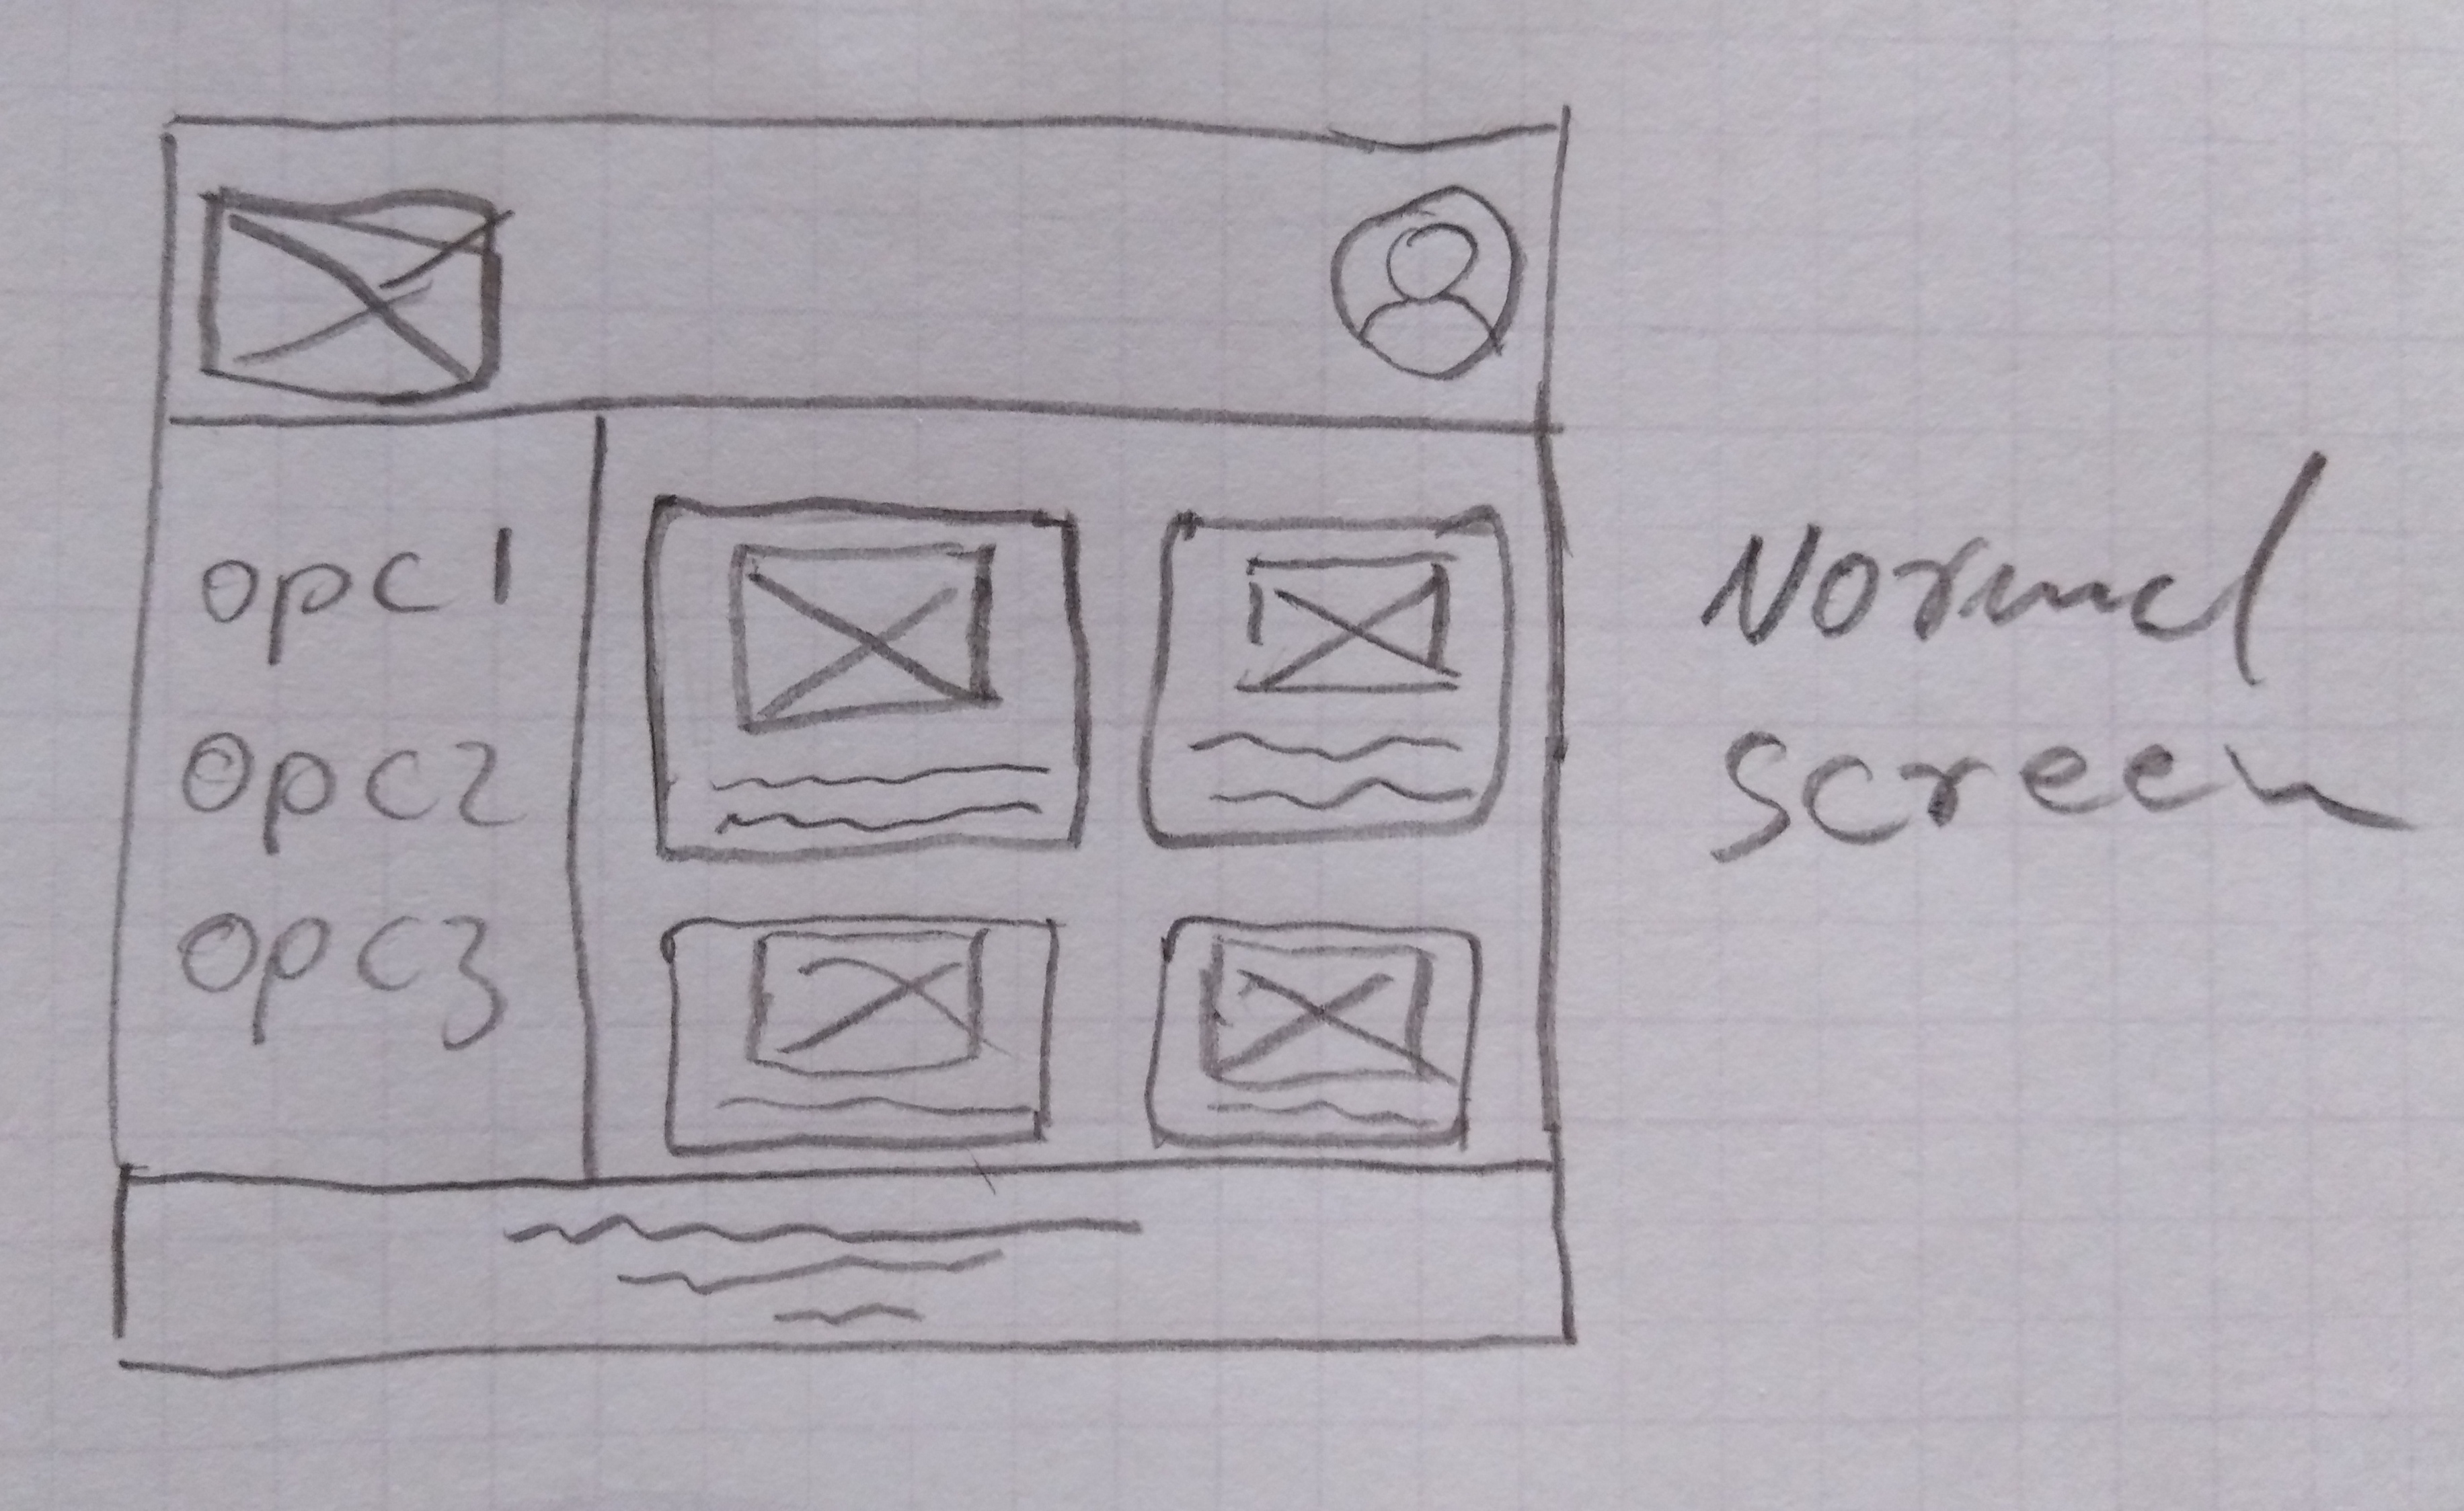 opc1
opc2
opc3
Normal
screen